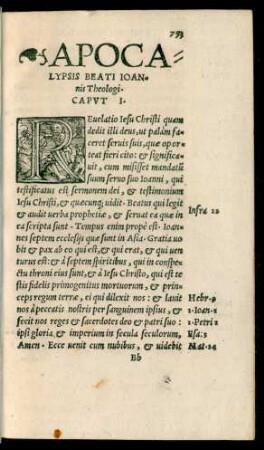 753
APOCA-
LYPSIS BEATI IOAN-
nis Theologi.
CAPVT I.
REuelatio Iesu Christi quam
dedit illi deus, ut palàm fa-
ceret seruis suis, quæ opor
teat fieri cito: & significa-
uit, cum misisset mandatū
suum seruo suo Ioanni, qui
testificatus est sermonem dei, & testimonium
Iesu Christi, & quæcunq; uidit. Beatus qui legit
& audit uerba prophetiæ, & seruat ea quæ in
ea scripta sunt. Tempus enim propè est. Ioan-
nes septem ecclesijs quæ sunt in Asia. Gratia uo
bis & pax ab eo qui est, & qui erat, & qui uen
turus est: & à septem spiritibus, qui in conspe-
ctu throni eius sunt, & à Iesu Christo, qui est te
stis fidelis primogenitus mortuorum, & prin-
ceps regum terræ, ei qui dilexit nos: & lauit
nos à peccatis nostris per sanguinem ipsius, &
fecit nos reges & sacerdotes deo & patri suo:
ipsi gloria, & imperium in secula seculorum,
Amen. Ecce uenit cum nubibus, & uidebit
Bb
Infrà 22
Hebr. 9
1. Ioan. 1
1. Petri 1
Esa. 3
Mat. 24